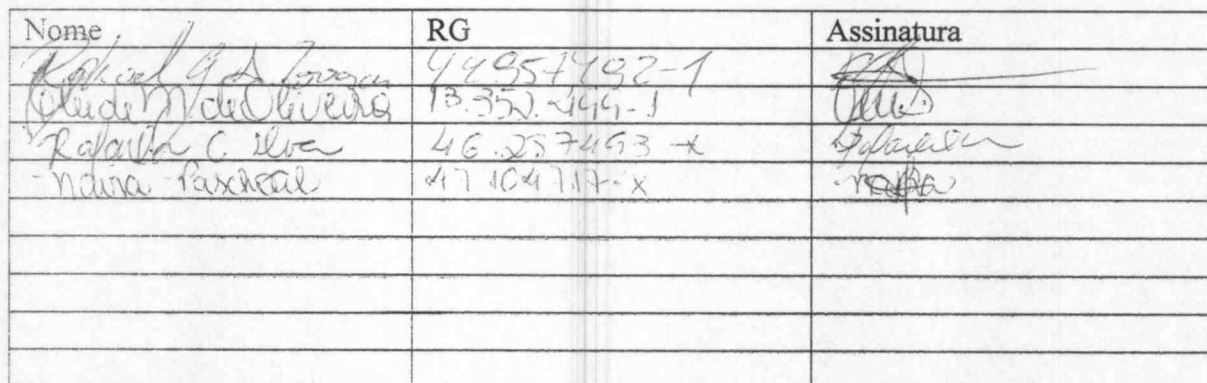 Nome RG Assinatura
Raphael G. de 44957492-1
Cleide M. de Oliveira 13.352.499-1
Rafaela C. Silva 46.257453-x Rafaela
Naira Paschoal 47104717-x